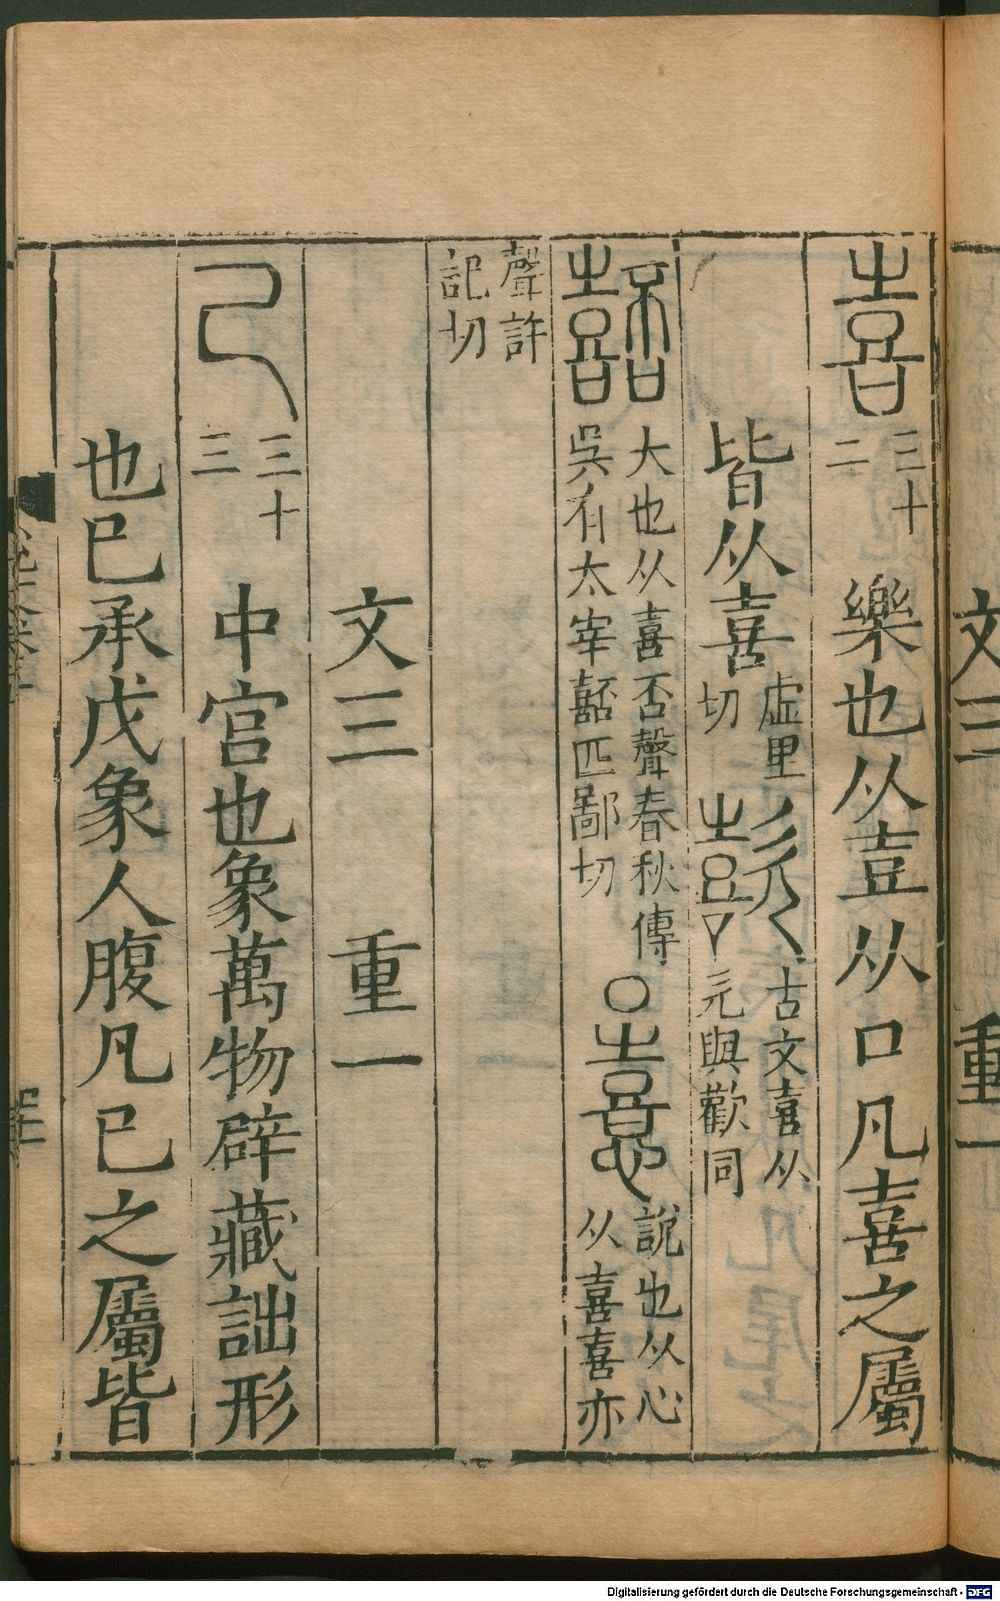 文三 重一
喜 三十二 樂也从壴从口凡喜之屬
皆从喜 虛里切 歖 古文喜从元與歡同
嚭 大也从喜否聲春秋傳吳有太宰嚭匹鄙切 ○ 憙 說也从心从喜喜亦
聲許記切
文三 重一
己 三十三 中宮也象萬物辟藏詘形
也巳承戊象人腹凡巳之屬皆
Digitalisierung gefördert durch die Deutsche Forschungsgemeinschaft - DFG